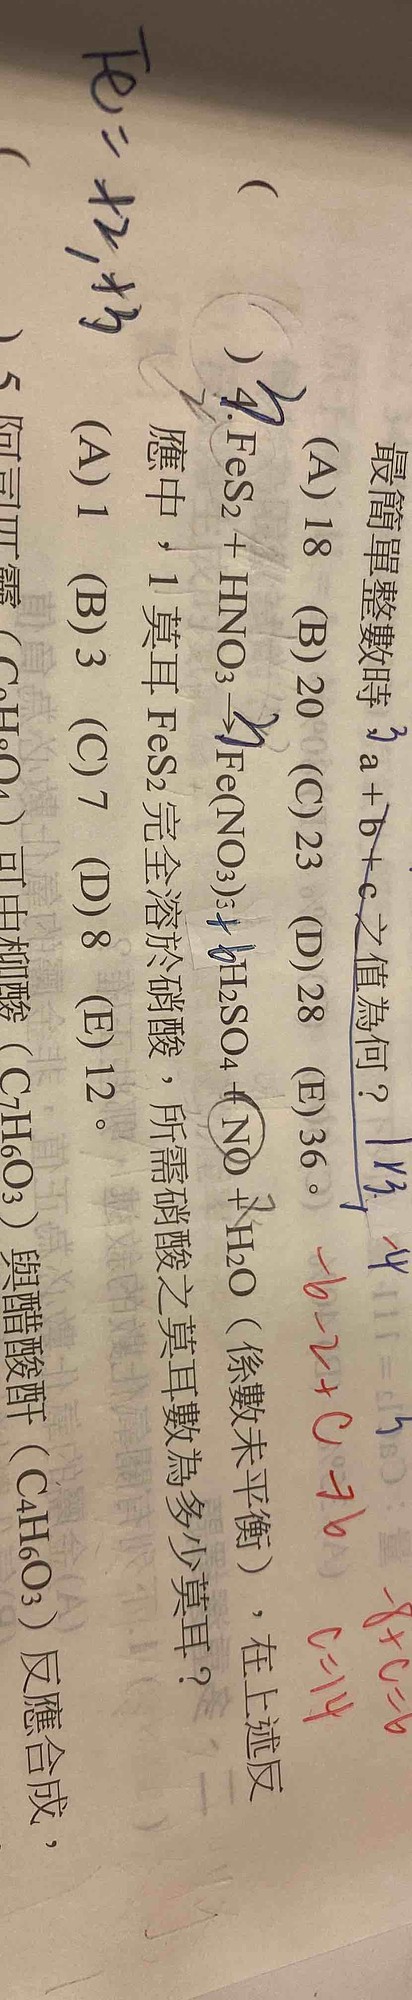 最簡單整數時，a+b+c之值為何？
(A) 18 (B) 20 (C) 23 (D) 28 (E) 36。
-6-2+C=76
-8+C=6
C=14
( ) 4. FeS2 + HNO3 → Fe(NO3)3 + 6H2SO4 + NO + H2O（係數未平衡），在上述反
應中，1 莫耳 FeS2 完全溶於硝酸，所需硝酸之莫耳數為多少莫耳？
(A) 1 (B) 3 (C) 7 (D) 8 (E) 12。
Fe = +2, +3
( ) 5. 阿司匹靈（C9H8O4）可由柳酸（C7H6O3）與醋酸酐（C4H6O3）反應合成，